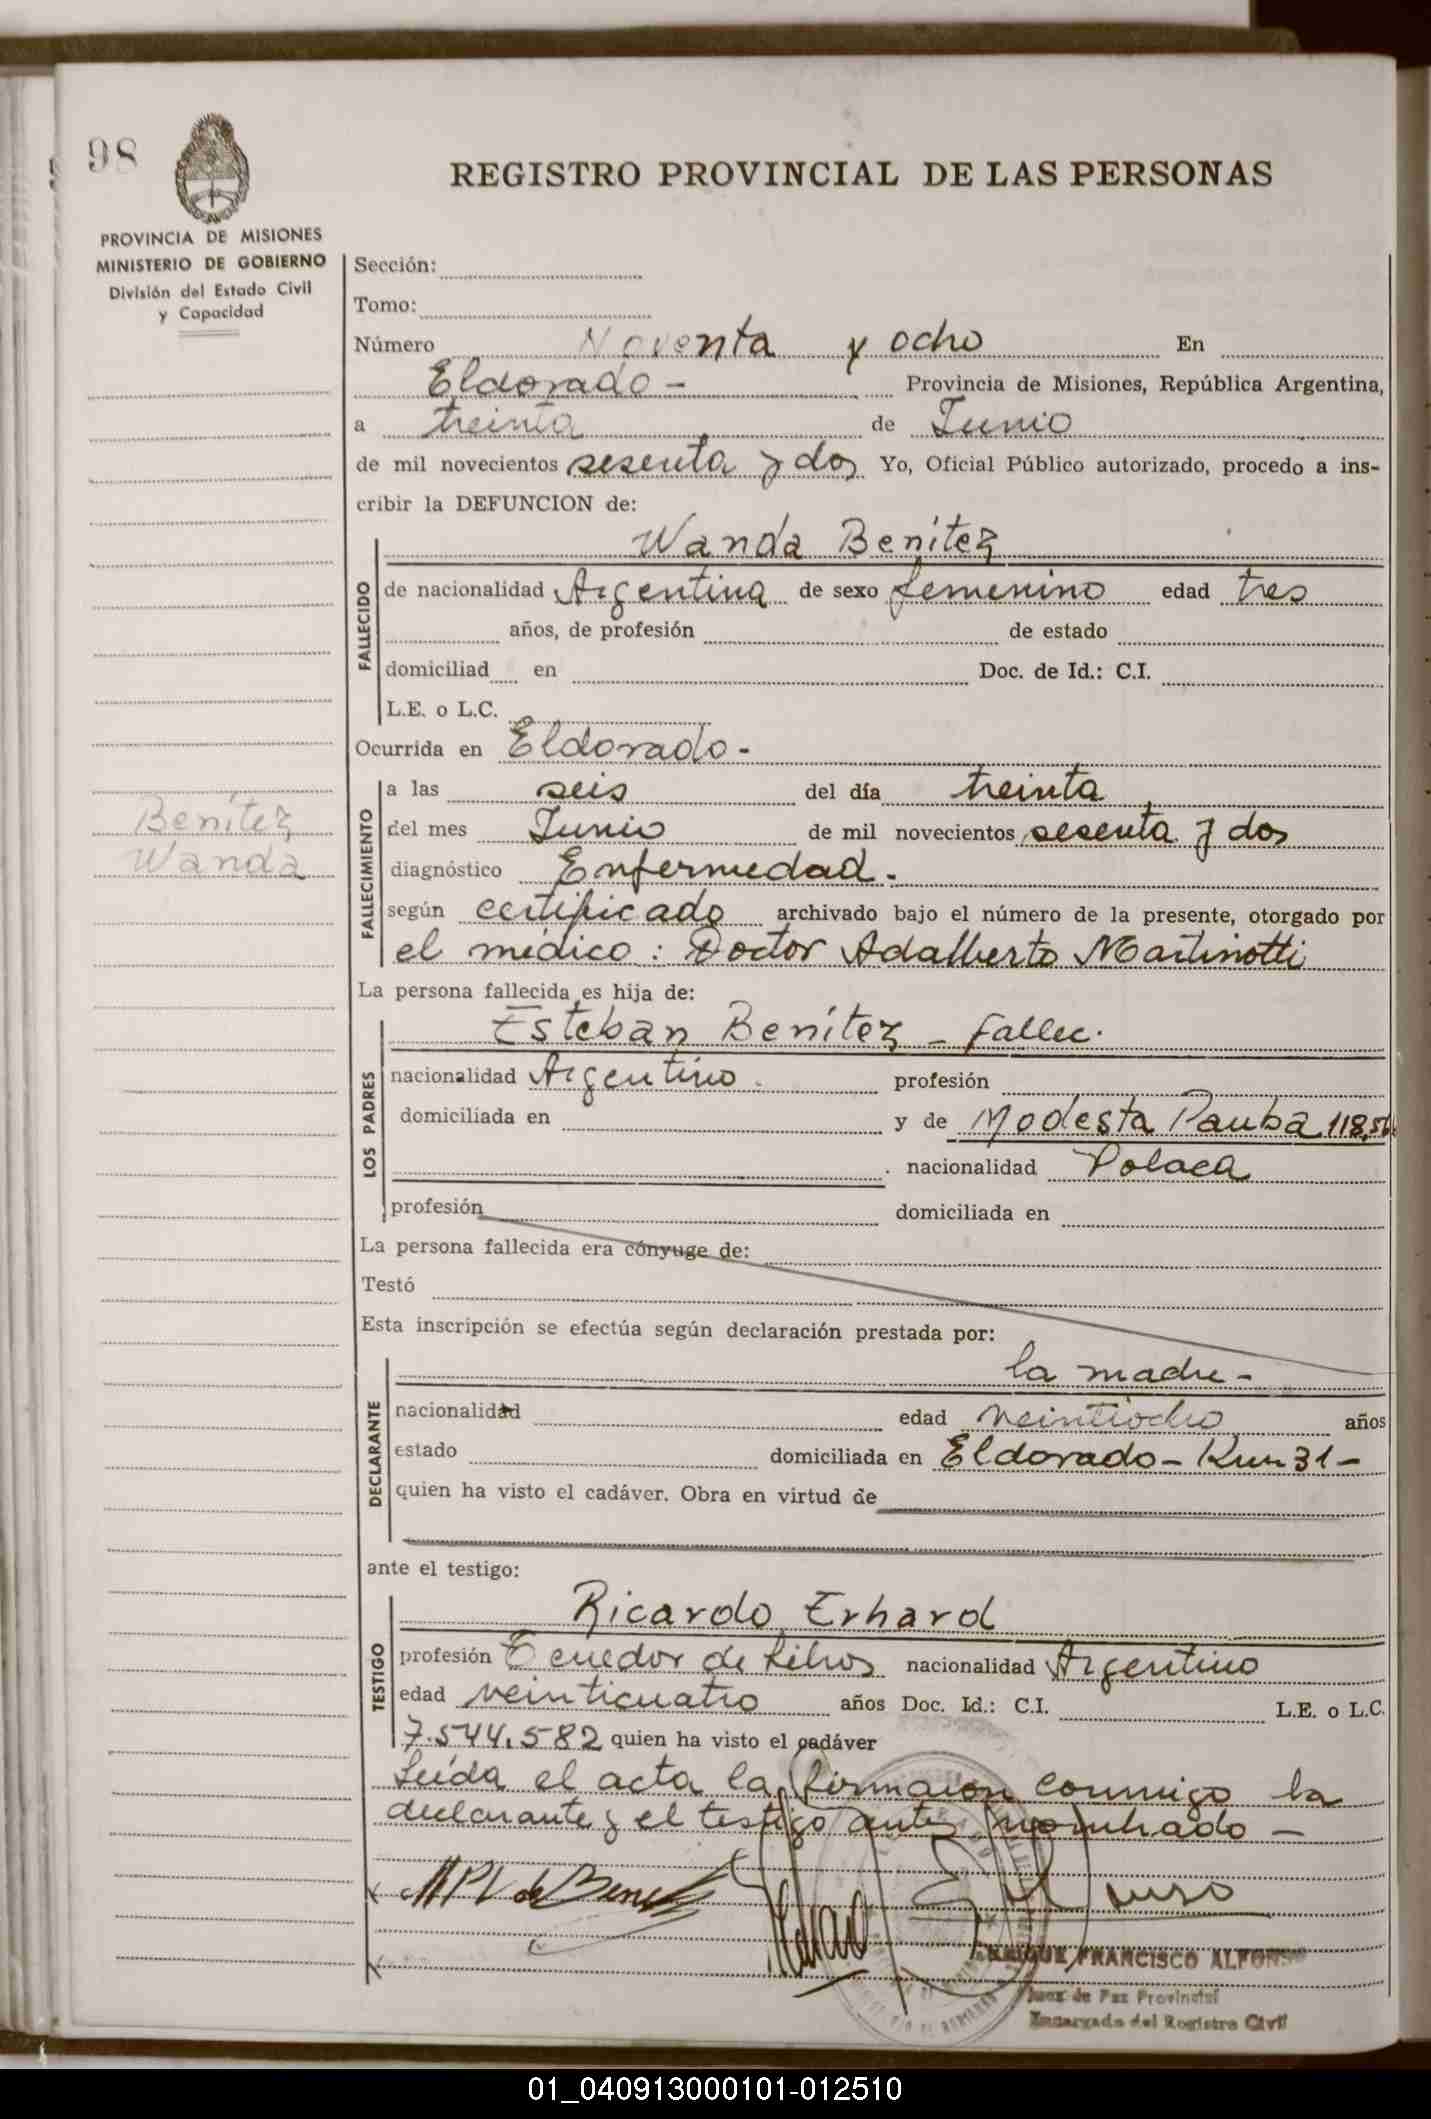 98
PROVINCIA DE MISIONES
MINISTERIO DE GOBIERNO
División del Estado Civil
y Capacidad
REGISTRO PROVINCIAL DE LAS PERSONAS
Sección:
Tomo:
Número Noventa y ocho En
Eldorado - Provincia de Misiones, República Argentina,
a treinta de Junio
de mil novecientos sesenta y dos Yo, Oficial Público autorizado, procedo a ins-
cribir la DEFUNCION de:
Wanda Benítez
FALLECIDO
de nacionalidad Argentina de sexo femenino edad tres
años, de profesión de estado
domiciliad en Doc. de Id.: C.I.
L.E. o L.C.
Ocurrida en Eldorado -
Benítez
Wanda
FALLECIMIENTO
a las seis del día treinta
del mes Junio de mil novecientos sesenta y dos
diagnóstico Enfermedad -
según certificado archivado bajo el número de la presente, otorgado por
el médico : Doctor Adalberto Martinotti
La persona fallecida es hija de:
LOS PADRES
Esteban Benítez - fallec.
nacionalidad Argentino . profesión
domiciliada en y de Modesta Pauba
nacionalidad Polaca
profesión domiciliada en
La persona fallecida era cónyuge de:
Testó
Esta inscripción se efectúa según declaración prestada por:
DECLARANTE
la madre -
nacionalidad edad veintiocho años
estado domiciliada en Eldorado - Km 31 -
quien ha visto el cadáver. Obra en virtud de
ante el testigo:
TESTIGO
Ricardo Erhard
profesión Tenedor de Libros nacionalidad Argentino
edad veinticuatro años Doc. Id.: C.I. L.E. o L.C.
7.544.582 quien ha visto el cadáver
Leída el acta la firmaron conmigo la
declarante y el testigo antes nombrado -
FRANCISCO ALFONSO
Juez de Paz Provincial
Encargado del Registro Civil
01_040913000101-012510